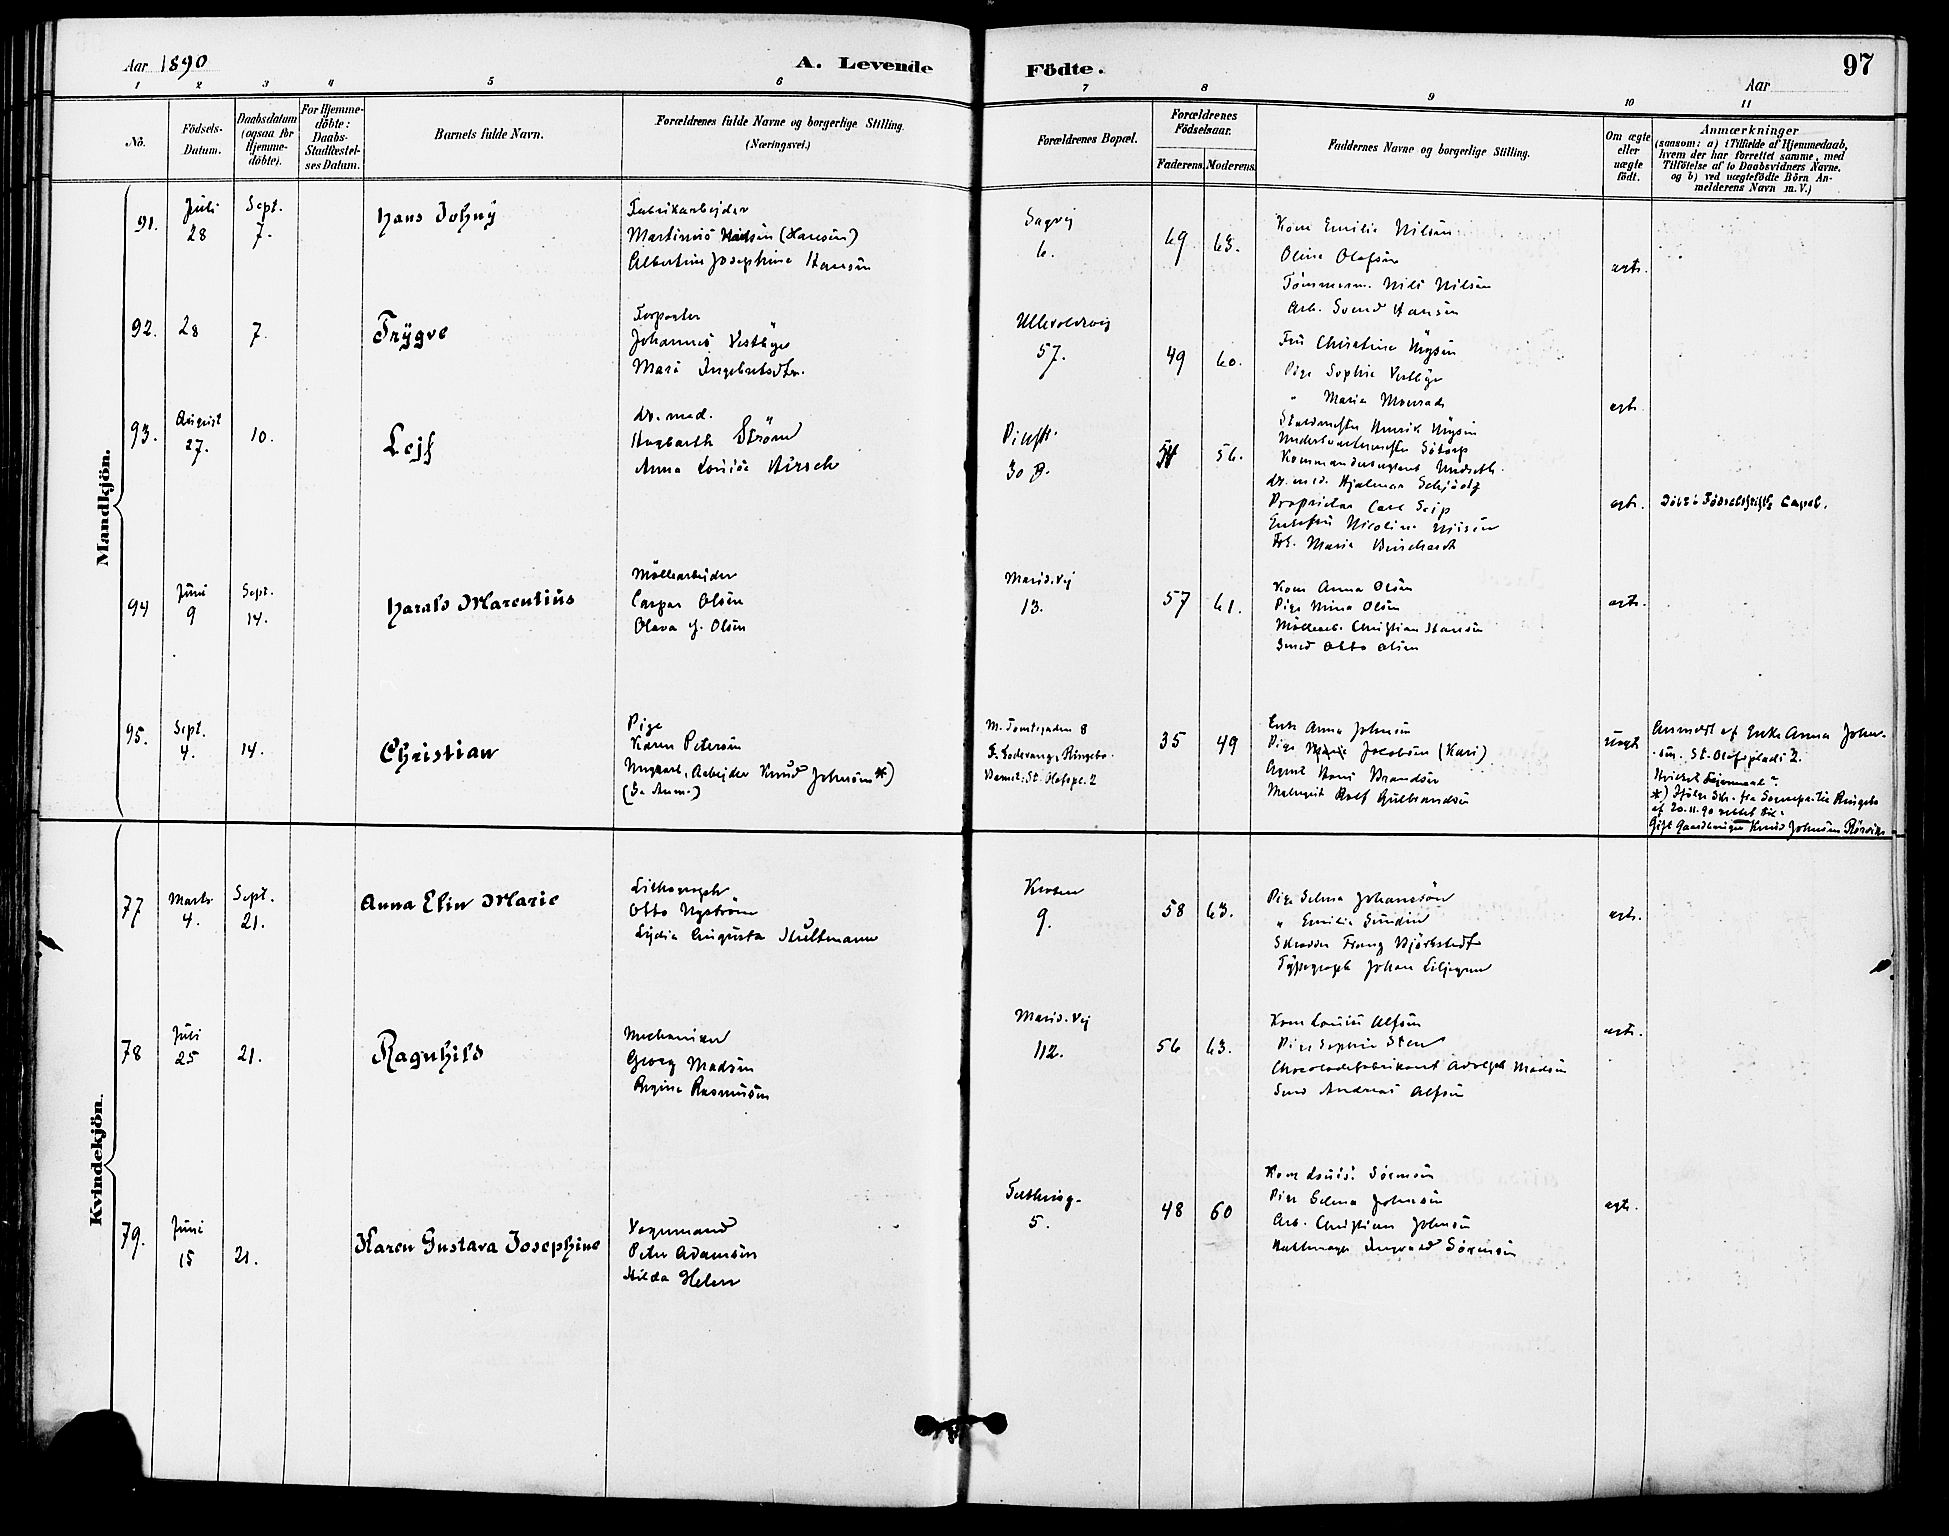 Aar 1890
A. Levende Födte.
Aar
97
1 2 3 4 5 6 7 8 9 10 11
No.
Födsels-
Datum.
Daabsdatum
(ogsaa for
Hjemme-
döbte).
For Hjemme-
döbte:
Daabs-
Stadfæstel-
ses Datum.
Barnets fulde Navn.
Forældrenes fulde Navne og borgerlige Stilling.
(Næringsvei.)
Forældrenes Bopæl.
Forældrenes
Födselsaar.
Faderens. Moderens.
Faddernes Navne og borgerlige Stilling.
Om ægte
eller
uægte
födt.
Anmærkninger
(saasom: a) i Tilfælde af Hjemmedaab,
hvem der har forrettet samme, med
Tilföielse af to Daabsvidners Navne,
og b) ved uægtefödte Börn An-
melderens Navn m. V.)
Mandkjön.
91.
Juli
28
Sept.
7.
Hans Johny
Fabrikarbeider
Martinius (Hansen)
Albertine Josephine Hansen
Sagvej
6.
69 63.
Kone Emilie Nilsen
Oline Olafsen
Tömmerm. Nils Nilsen
Arb. Svend Hansen
ægte.
92.
28
7.
Trygve
Johannes Vestbye
Marie Ingebretsdtr.
Ullevoldsvej
57.
49 60.
Fru Christine
Pige Sophie Vestbye
" Maria Monrad
Henrik
ægte
93.
August
27.
10.
Lejf
dr. med.
Hagbarth Ström
Anna Louise Hirsch
Pilestr.
30 B.
56.
dr. med. Hjalmar Schjödt
Proprietær Carl Seip
Enkefru Nicoline
Frk. Maria
ægte.
Döbt i Födselsstift. Capel.
94
Juni
9
Sept.
14.
Harald Marentius
Möllearbeider
Caspar Olsen
Olava J. Olsen
Marid. Vej
13.
57 61.
Kone Anna Olsen
Pige Mina Olsen
Möllearb. Christian Hansen
Smed Otto Olsen
ægte.
95.
Sept.
4.
14.
Christian
Pige
Karen Petersen
Ungkarl, Arbejder Knud Johnsen *)
(Se Anm.)
M. Tomtegaden 8
F. Ringebo
Barnet: St. Olafspl. 2
35 49
Enke Anna Johnsen
Pige Jacobsen (Kari)
Agent Hans Brandsen
Rolf Gulbrandsen
uægte
Anmeldt af Enke Anna John-
sen. St. Olafsplads 2.
*) Ifölge Skr. fra Sognepr. til Ringebo
af 20.11.90 rettet til:
Gift Gaardbruger Knud Johnsen
Kvindekjön.
77
Marts
4.
Sept.
21.
Anna Elin Marie
Lithograph
Otto Nyström
Lydia Augusta Hultmann
9.
58 63.
Pige Selma Johansson
" Emilie Sundin
Skrædder Franz Björkstedt
Typograph Johan Liljegren
ægte.
78
Juli
25
21.
Ragnhild
Mechaniker
Georg Madsen
Regine Rasmussen
Marid. Vej
112.
56 63.
Kone Louise Alfsen
Pige Sophie Sten
Chocoladefabrikant Adolph Madsen
Smed Andreas Alfsen
ægte.
79.
Juni
15
21.
Karen Gustava Josephine
Vognmand
Peter Adamsen
Hilda Helen
5.
48 60
Kone Louise Sörensen
Pige Selma Johnsen
Arb. Christian Johnsen
Hattemager Ingvald Sörensen
ægte.